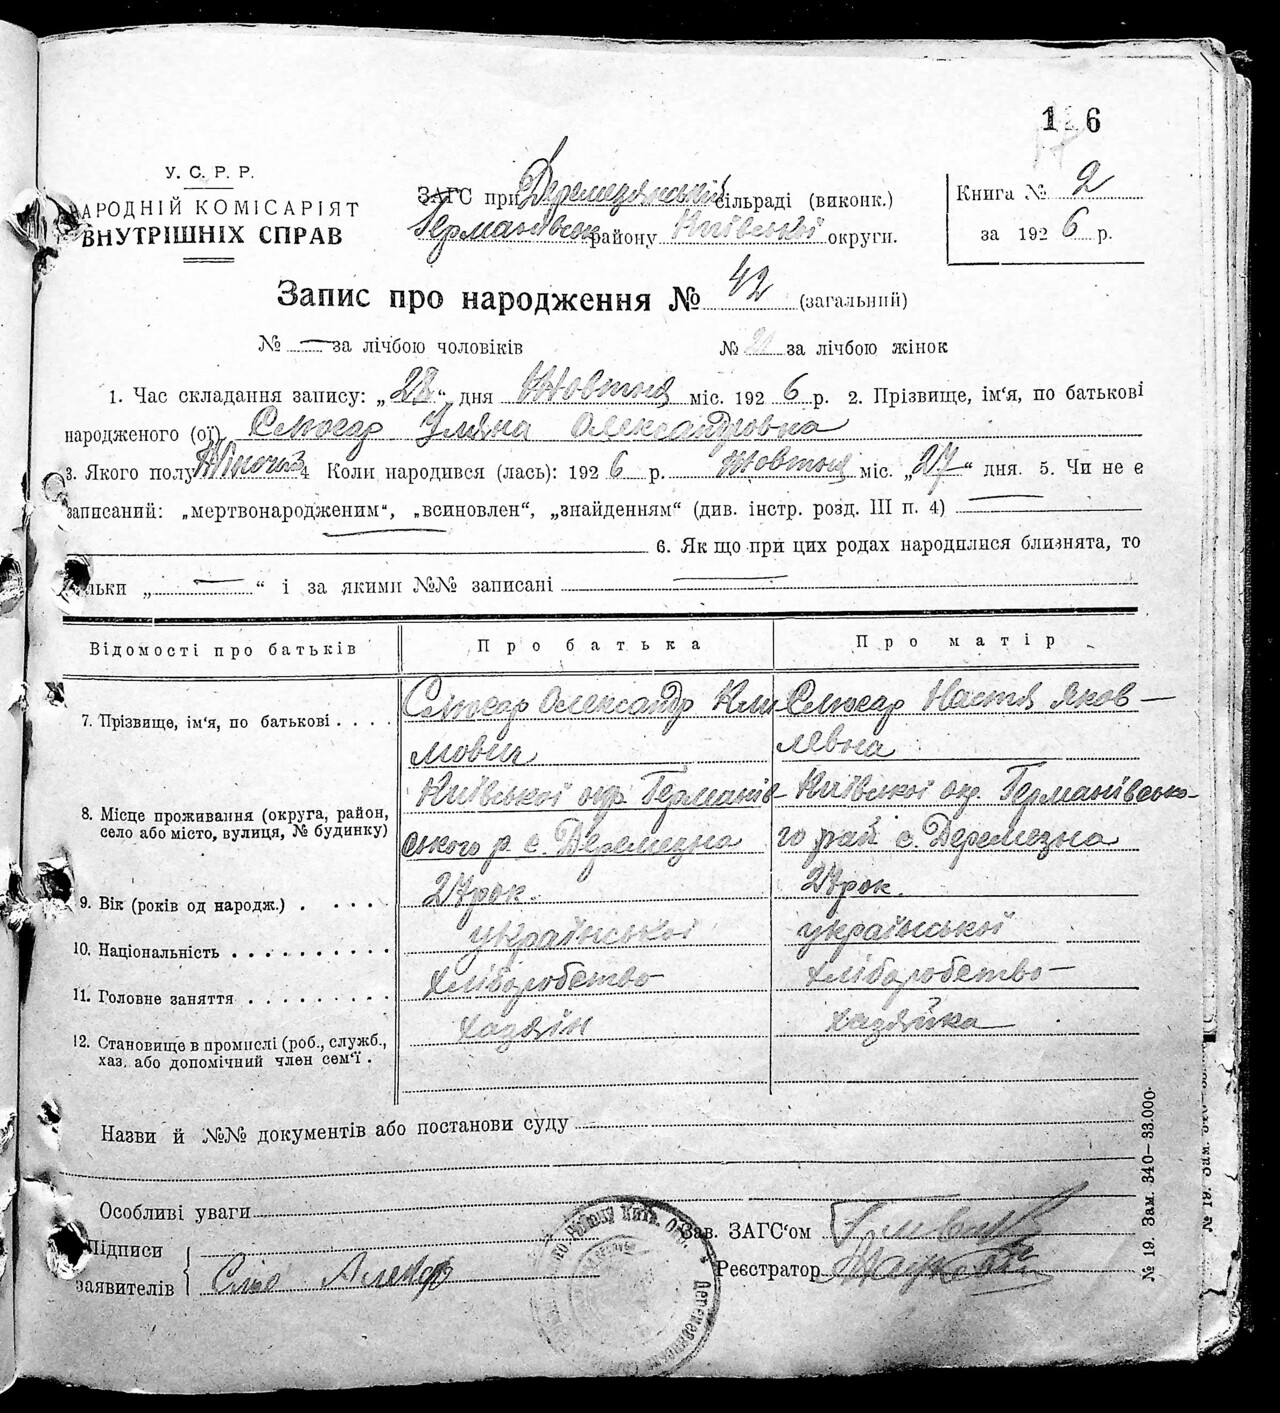 1 6
У. С. Р. Р.
НАРОДНІЙ КОМІСАРІЯТ
ВНУТРІШНІХ СПРАВ
ЗАГС при Деремезянській сільраді (виконк.)
Германівськ району Київської округи.
Книга № 2
за 1926 р.
Запис про народження № 42 (загальний)
№ — за лічбою чоловіків № 21 за лічбою жінок
1. Час складання запису: „28“ дня Жовтня міс. 1926 р. 2. Прізвище, ім‘я, по батькові
народженого (ої) Слюсар Уляна Олександровна
3. Якого полу Жіночой 4 Коли народився (лась): 1926 р. Жовтня міс. „27“ дня. 5. Чи не є
записаний: „мертвонародженим“, „всиновлен“, „знайденням“ (див. інстр. розд. III п. 4) —
— 6. Як що при цих родах народилися близнята, то
скільки „ — “ і за якими №№ записані —
Відомості про батьків Про батька Про матір
7. Прізвище, ім‘я, по батькові . . . . Слюсар Олександр Кли Слюсар Настя Яков—
мович левна
8. Місце проживання (округа, район, Київської окр. Германів- Київської окр. Германівсько-
село або місто, вулиця, № будинку) ського р. с. Деремезна го рай с. Деремезна
9. Вік (років од народж.) . . . . . 27 рок. 27 рок.
10. Національність . . . . . . . . . . української української
11. Головне заняття . . . . . . . . . хліборобство хліборобство—
12. Становище в промислі (роб., служб., хазяїн хазяйка
хаз. або допомічний член сем‘ї .
Назви й №№ документів або постанови суду
Особливі уваги
Зав. ЗАГС‘ом
Підписи
заявителів Слю Алекср
Реєстратор
№ 19. Зам. 340—33.000.